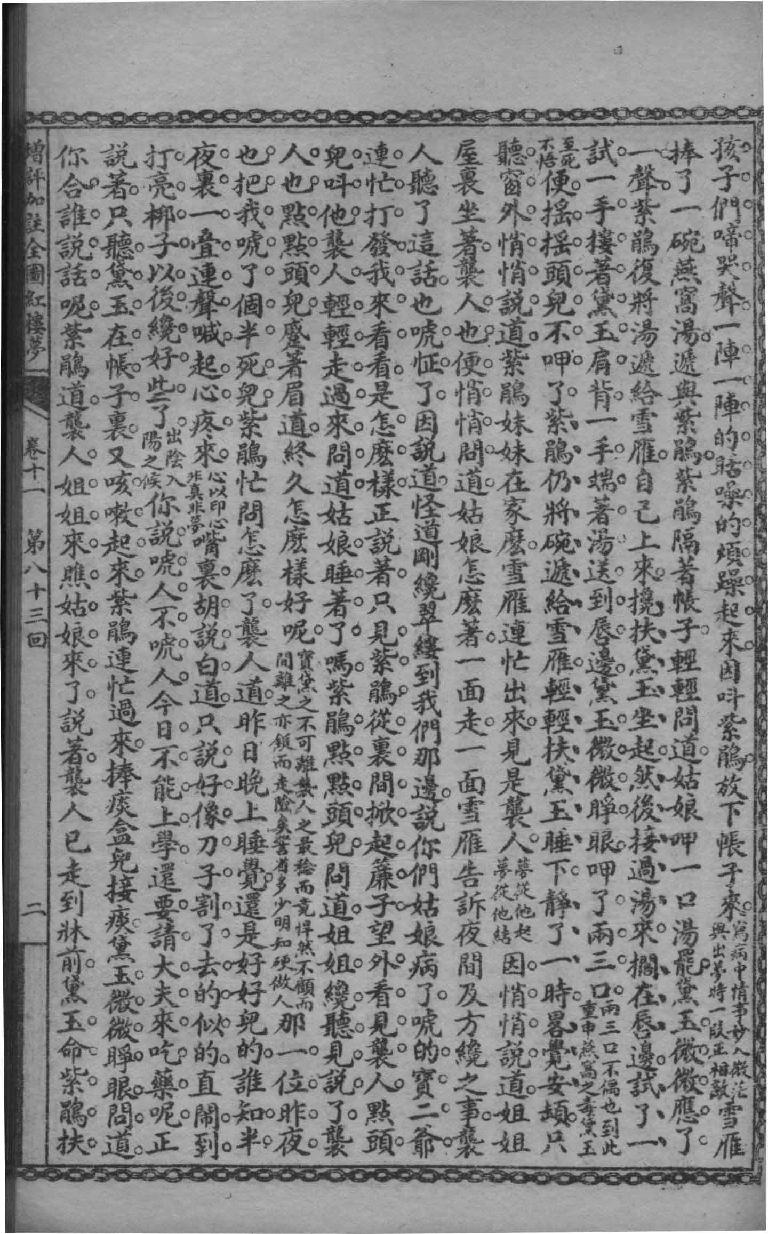 孩子們啼哭聲一陣一陣的聒噪的煩躁起來因呌紫鵑放下帳子來寫病中情事妙入微茫與出夢時一段正相敵雪雁
捧了一碗燕窩湯遞與紫鵑紫鵑隔著帳子輕輕問道姑娘呷一口湯罷黛玉微微應了
一聲紫鵑復將湯遞給雪雁自己上來攙扶黛玉坐起然後接過湯來擱在唇邊試了一
試一手摟著黛玉肩背一手端著湯送到唇邊黛玉微微睜眼呷了兩三口兩三口不偶也到此重申燕窩之毒黛玉
至死不悟便搖搖頭兒不呷了紫鵑仍將碗遞給雪雁輕輕扶黛玉睡下靜了一時畧覺安頓只
聽窗外悄悄說道紫鵑妹妹在家麽雪雁連忙出來見是襲人夢從他起夢從他結因悄悄說道姐姐
屋裏坐著襲人也便悄悄問道姑娘怎麽著一面走一面雪雁告訴夜間及方纔之事襲
人聽了這話也唬怔了因說道怪道剛纔翠縷到我們那邊說你們姑娘病了唬的寶二爺
連忙打發我來看看是怎麽樣正說著只見紫鵑從裏間掀起簾子望外看見襲人點頭
兒呌他襲人輕輕走過來問道姑娘睡著了嗎紫鵑點點頭兒問道姐姐纔聽見說了襲
人也點點頭兒蹙著眉道終久怎麽樣好呢寶黛之不可離襲人之最稔而竟悍然不顧而間離之亦鋌而走險矣世多少明知硬做人那一位昨夜
也把我唬了個半死兒紫鵑忙問怎麽了襲人道昨日晚上睡覺還是好好兒的誰知半
夜裏一疊連聲喊起心疼來心以印心非真非夢嘴裏胡說白道只說好像刀子割了去的似的直鬧到
打亮梆子以後纔好些了出陰入陽之候你說唬人不唬人今日不能上學還要請大夫來吃藥呢正
說著只聽黛玉在帳子裏又咳嗽起來紫鵑連忙過來捧痰盒兒接痰黛玉微微睜眼問道
你合誰說話呢紫鵑道襲人姐姐來瞧姑娘來了說著襲人已走到牀前黛玉命紫鵑扶
增評加註全圖紅樓夢　卷十一　第八十三回　二